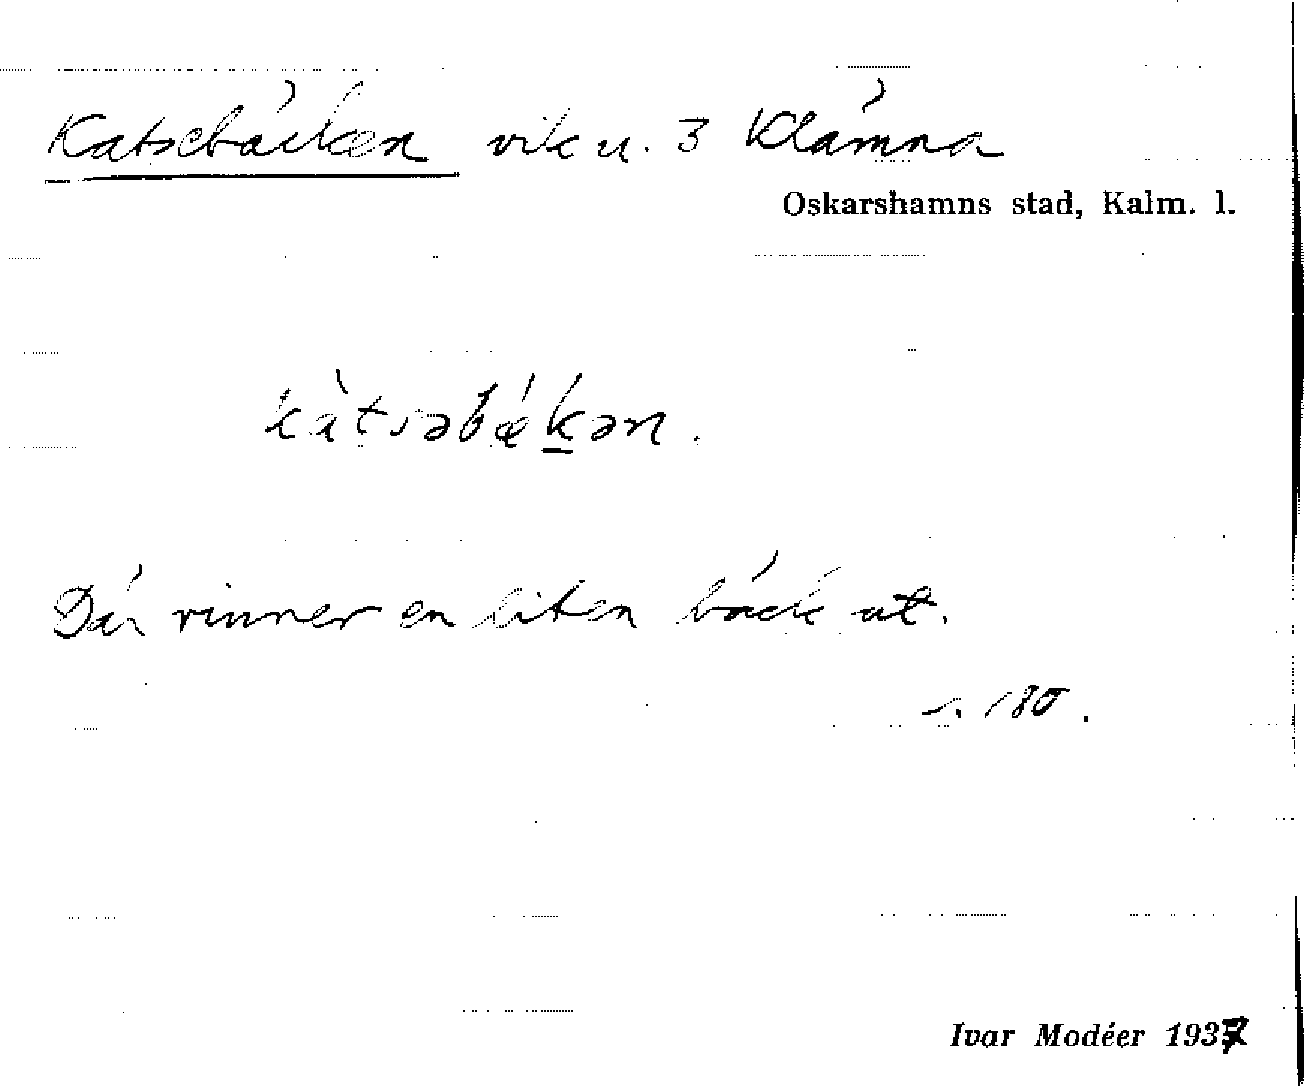 Katsebäcken vik u. 3 Klämna
Oskarshamns stad, Kalm. l.
kàtsəbǽkən.
Där rinner en liten bäck ut.
s. 180.
Ivar Modéer 1937